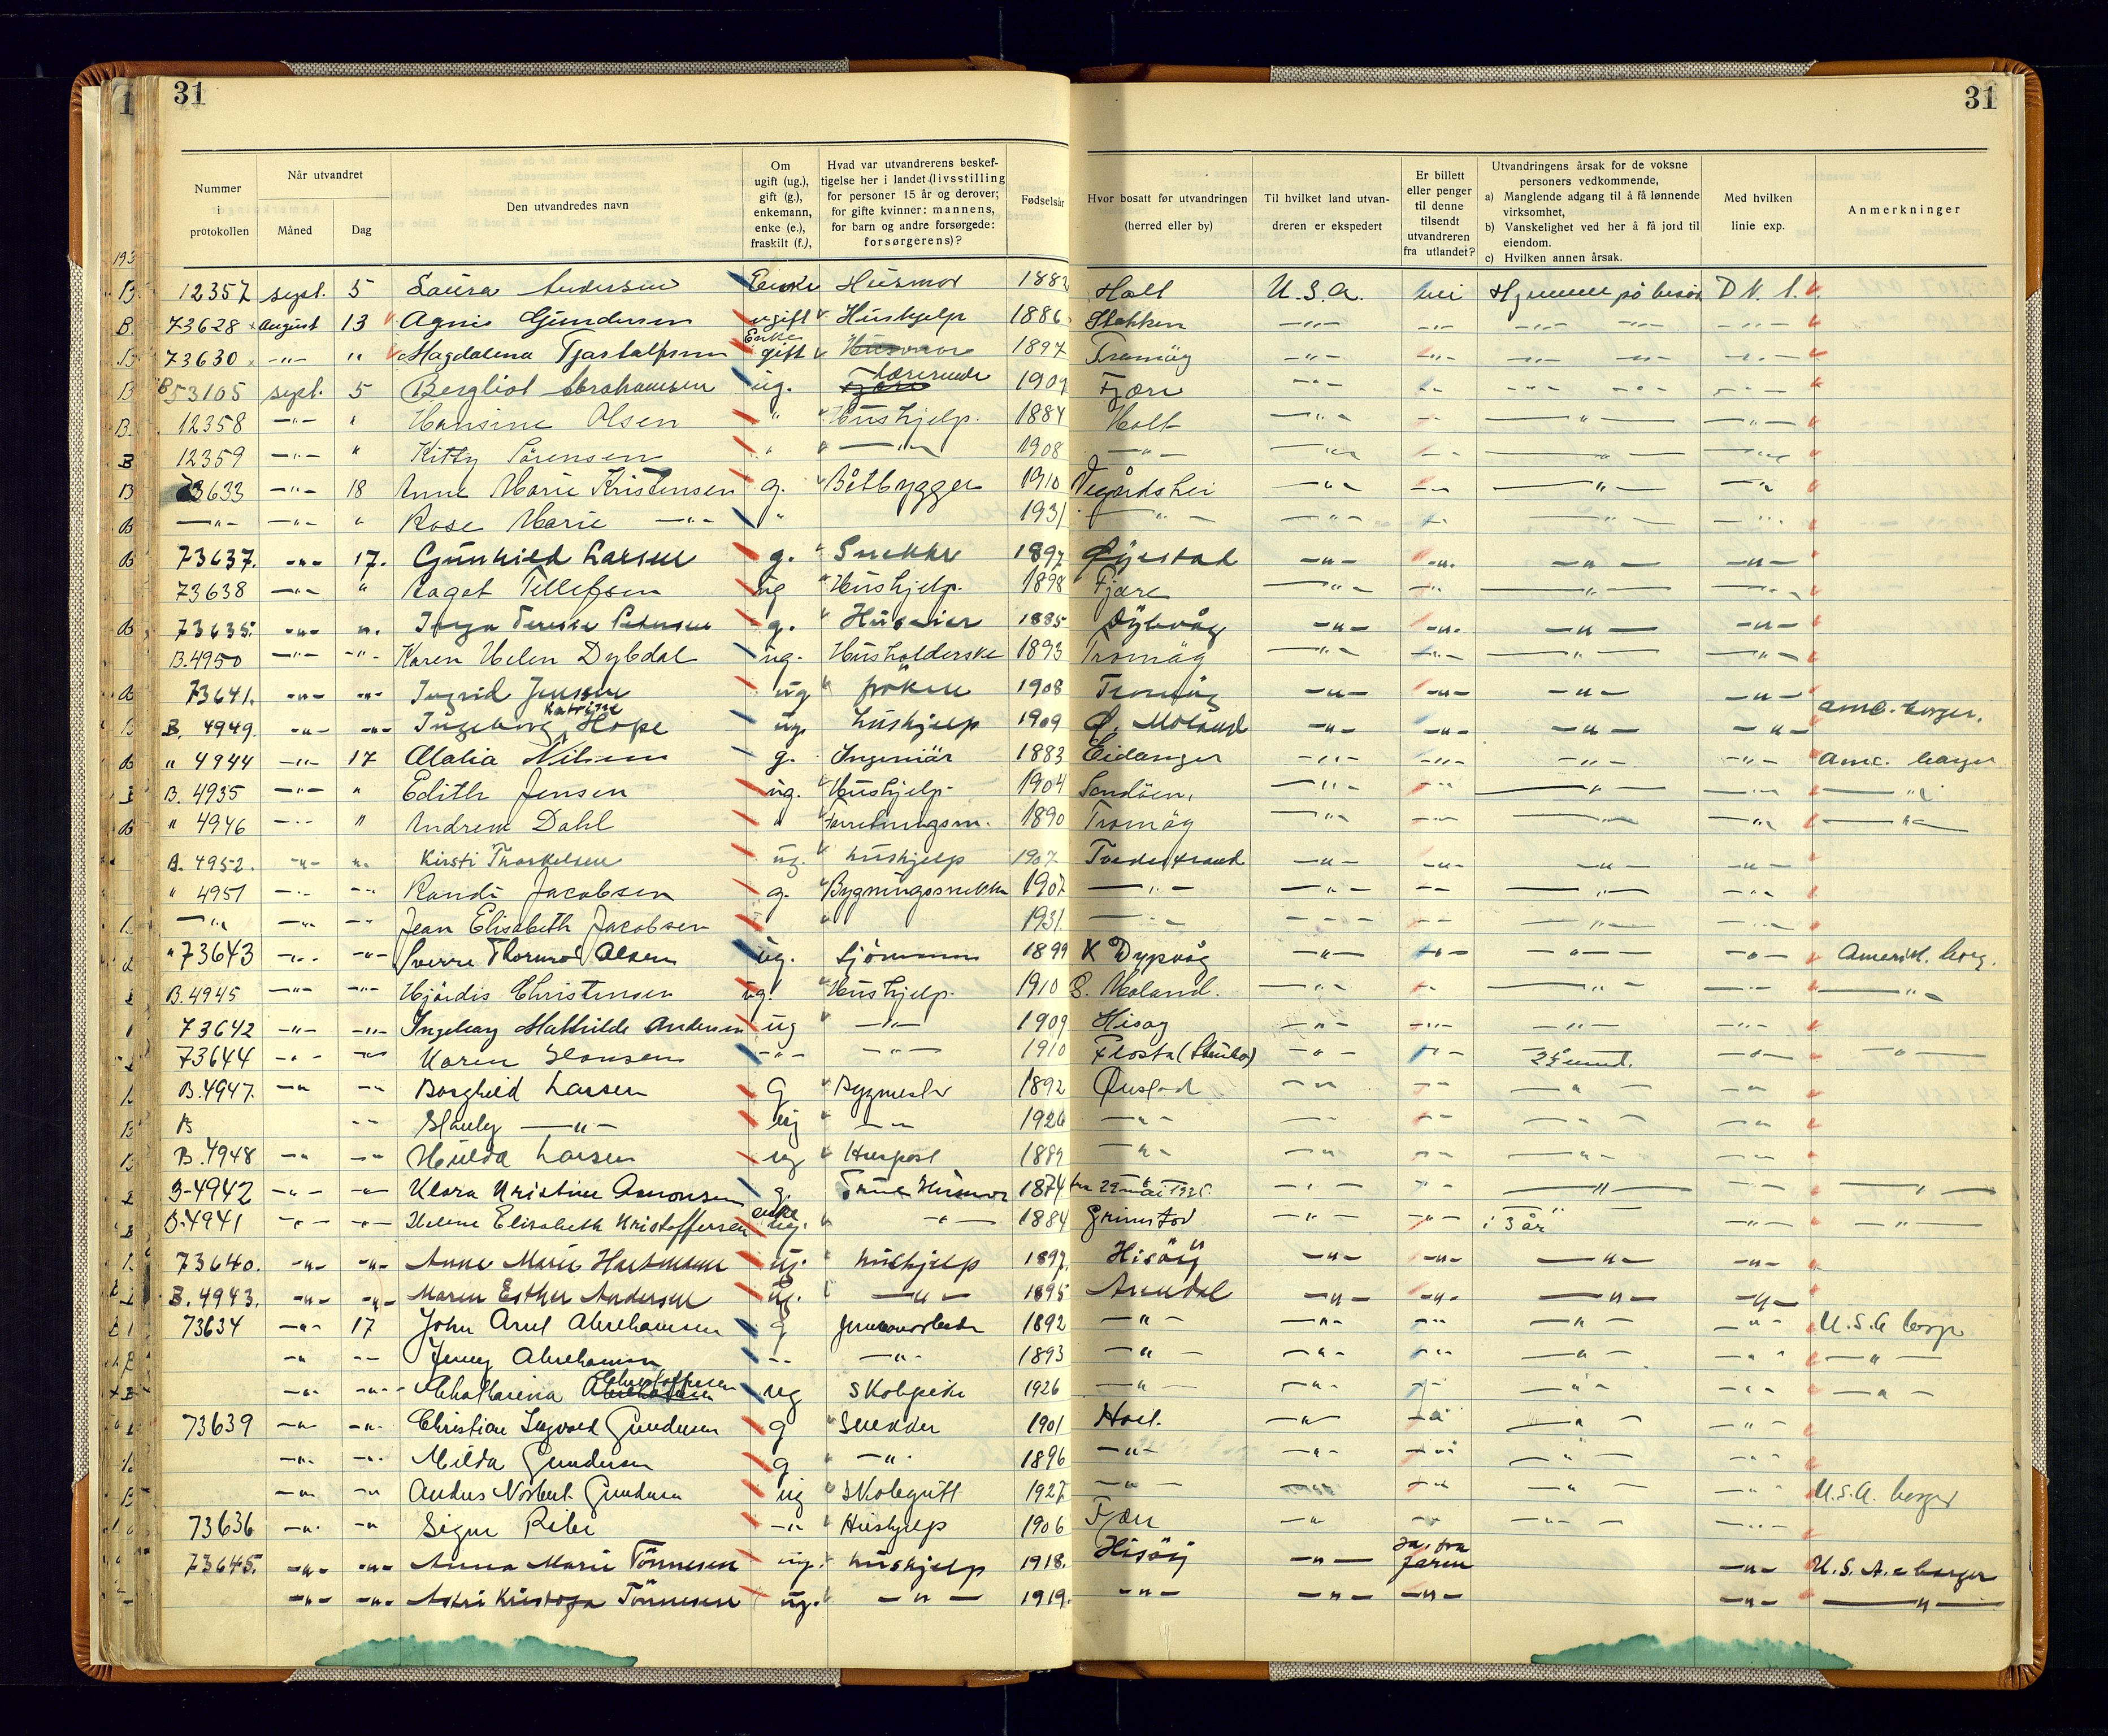 31
31
Nummer i protokollen
Når utvandret
Måned
Dag
Den utvandredes navn
Om ugift (ug.), gift (g.), enkemann, enke (e.), fraskilt (f.),
Hvad var utvandrerens beskeftigelse her i landet (livsstilling for personer 15 år og derover; for gifte kvinner: mannens, for barn og andre forsørgede: forsørgerens)?
Fødselsår
Hvor bosatt før utvandringen (herred eller by)
Til hvilket land utvandreren er ekspedert
Er billett eller penger til denne tilsendt utvandreren fra utlandet?
Utvandringens årsak for de voksne personers vedkommende,
a) Manglende adgang til å få lønnende virksomhet,
b) Vanskelighet ved her å få jord til eiendom.
c) Hvilken annen årsak.
Med hvilken linie exp.
Anmerkninger
193
B. 12357 sept. 5 Laura Andersen Enke Husmor 1882 Holt U.S.A. nei Hjemme på besøk D N. A.
B. 73628 August 13 Agnes Gundersen ugift Hushjelp 1886 Stokken -"- -"- -"- -"- -"-
B 73630 -"- " Magdalena Enke gift Husmor 1897 Tromöy -"- -"- -"- -"- -"-
B B53105 sept. 5 Bergliot Abrahamsen ug. Fjære Lærerinde 1909 Fjære -"- -"- -"- -"- -"-
B. 12358 -"- " Hansine Olsen " Hushjelp. 1884 Holt -"- -"- -"- -"-
B 12359 -"- " Kitty Sörensen " -"- 1908 -"- -"- -"- -"- -"-
B 73633 -"- 18 Anne Marie Kristensen g. Båtbygger 1910 Vegårdshei -"- -"- -"- -"-
B -"- -"- " Rose Marie -"- " 1931 -"- -"- -"- -"- -"-
B 73637. -"- 17. Gunhild Larsen g. Snekker 1897 Øyestad -"- -"- -"- -"-
73638 -"- " Tellefsen ug Hushjelp. 1898 Fjære -"- -"- -"- -"-
B 73635. -"- ". Petersen g. 1885 Dybvåg -"- -"- -"- -"-
B.4950 -"- -"- Karen Helen Dybdal ug. Husholderske 1893 Tromöy -"- -"- -"- -"-
B 73641. -"- -"- Ingrid Jensen ug fröken 1908 Tromöy -"- -"- -"- -"-
B. 4949. -"- -"- Ingeborg Katrine Hope ug. hushjelp 1909 Ø. Moland -"- -"- -"- -"- amr. borger.
B " 4944 -"- 17 Nilsen g. Ingeniör 1883 Eidanger -"- -"- -"- -"- amr. borger
B. 4935 -"- " Edith Jensen ug. Hushjelp. 1904 Sandöen. -"- -"- -"- -"- -"-
B " 4946 -"- " Andrew Dahl " Forretningsm. 1890 Tromöy -"- -"- -"- -"- -"-
B. 4952. -"- ". Kirsti Thorkelsen ug. hushjelp 1907 Tvedestrand -"- -"- -"- -"-
" 4951 -"- -"- Randi Jacobsen g. Bygningssnekker 1907 -"- -"- -"- -"- -"-
-"- -"- -"- Jean Elisabeth Jacobsen " 1931 -"- -"- -"- -"- -"-
" 73643 -"- -"- Sverre Thormod Olsen ug. Sjömann 1899 Dypvåg -"- -"- -"- -"- Amerik. borg.
B.4945 -"- -"- Hjördis Christensen ug. Hushjelp. 1910 Moland. -"- -"- -"- -"- -"-
73642 -"- -"- Ingeborg Mathilde Andersen ug -"- 1909 Hisøy -"- -"- -"- -"-
73644 -"- -"- Karen Hansen -"- -"- 1910 Flosta -"- -"- -"- -"-
B.4947. -"- -"- Borghild Larsen g Bygmester 1892 Øiestad -"- -"- -"- -"-
B B -"- Stanley -"- ug -"- 1926 -"- -"- -"- -"- -"-
B B.4948 -"- -"- Hulda Larsen ug Huspost 1889 -"- -"- -"- -"- -"-
B-4942 -"- -"- Klara Kristine Aanonsen g. Husmor 1874 29 mai 1925. -"- -"- -"- -"- -"-
B.4941 -"- -"- Helene Elisabeth Kristoffersen enke ug. -"- 1884 Grimstad -"- -"- i 3 år -"- -"-
73640. -"- -"- Anne Marie Hartmann ug. hushjelp 1897. Hisöy -"- -"- -"- -"-
B. 4943. -"- -"- Maren Esther Andersen ug. -"- 1895 Arendal -"- -"- -"- -"-
73634 -"- 17 John Abrahamsen g 1892 -"- -"- -"- -"- -"- U.S.A borg
-"- -"- Jenny Abrahamsen -"- -"- 1893 -"- -"- -"- -"- -"- -"-
-"- -"- Christoffersen ug Skolepike 1926 -"- -"- -"- -"- -"- -"-
73639 -"- -"- Christian Ingvald Gundersen g Snekker 1901 Holt. -"- -"- -"- -"-
-"- -"- Milda Gundersen g -"- 1896 -"- -"- -"- -"- -"-
-"- -"- Anders Norbert Gundersen ug Skolegutt 1927. -"- -"- -"- -"- -"- U.S.A. borger
73636 -"- -"- -"- Hushjelp 1906 Fjære -"- -"- -"- -"-
73645. -"- -"- Anna Marie Tönnesen ug. hushjelp 1918. Hisöy -"- Ja, fra faren -"- U.S.A. borger
-"- -"- Tönnesen ug. -"- 1919. -"- -"- -"- -"- -"-